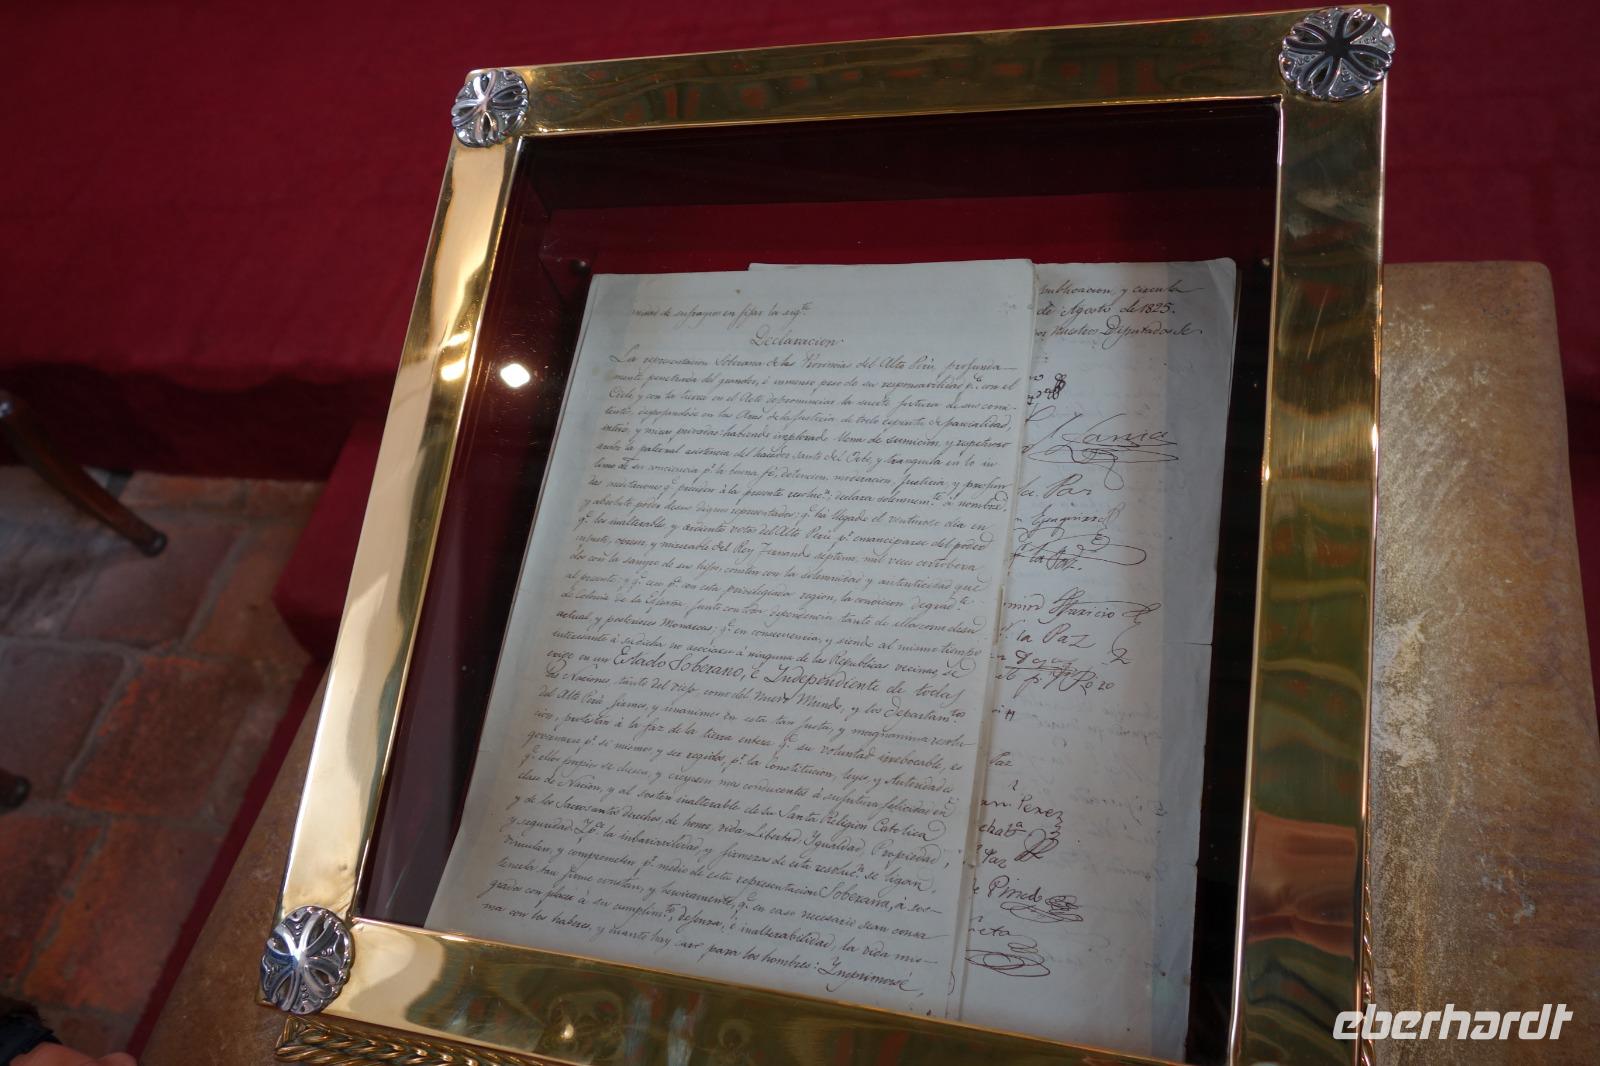 nidad de sufragios en fijar la sigte
Declaracion
La representacion Soberana de las Provincias del Alto Perú, profunda-
mente penetrada del grandor, é inmenso peso de su responsabilidad pa. con el
Cielo, y con la tierra en el Acto de pronunciar la suerte futura de sus comi-
tentes, despojandose en las Aras de la Justicia de todo espiritu de parcialidad,
interes, y miras privadas: habiendo implorado llena de sumicion, y respetuoso
ardor la paternal asistencia del hacedor santo del Orbe, y tranquila en lo in-
timo de su conciencia pr. la buena fé, detencion, moderacion, justicia, y profun-
das meditaciones qe. preciden á la presente resolucn., declara solemnemte. á nombre,
y absoluto poder de sus dignos representados: qe. ha llegado el venturoso dia en
qe. los inalterables y ardientes votos del Alto Perú pr. emanciparse del poder
injusto, opresor, y miserable del Rey Fernando septimo, mil veces corrobora-
dos con la sangre de sus hijos, consten con la solemnidad y autenticidad que
al presente, y qe. cese pa. con esta privilegiada region, la condicion degradte.
de Colonia de la España, junto con toda dependencia tanto de ella como de su
actual, y posteriores Monarcas: qe. en consecuencia, y siendo al mismo tiempo
interesante á su dicha no asociarse á ninguna de las Republicas vecinas, se
erige en un Estado Soberano, é Independiente de todas
las Naciones, tanto del viejo como del nuevo Mundo, y los departamtos
del Alto Perú firmes, y unanimes en esta tan justa, y magnanima resolu-
cion, protestan á la faz de la tierra entera qe. su voluntad irrebocable, es
governarse pr. si mismos, y ser regidos, pr. la Constitucion, leyes, y Autoridades
qe. ellos propios se diesen, y creyesen mas conducentes á su futura felicidad en
clase de Nacion, y al sosten inalterable de su Santa Religion Catolica
y de los Sacrosantos derechos, de honor, vida, Libertad, Ygualdad, Propiedad,
y seguridad. Y pa. la invariabilidad, y firmeza de esta resolucn. se ligan,
vinculan, y comprometen pr. medio de esta representacion Soberana, á sos-
tenerla tan firme constan, y heroicamente, qe. en caso necesario sean consa-
grados con placer á su cumplimto., defensa, é inalterabilidad, la vida mis-
ma con los haberes, y cuanto hay caro para los hombres: Ymprimase,
publicacion, y circula
de Agosto de 1825.
por nuestros Diputados Se-
Paz
la Paz.
Aparicio
La Paz
Paz
Perez
Paz
Pinedo
eberhardt